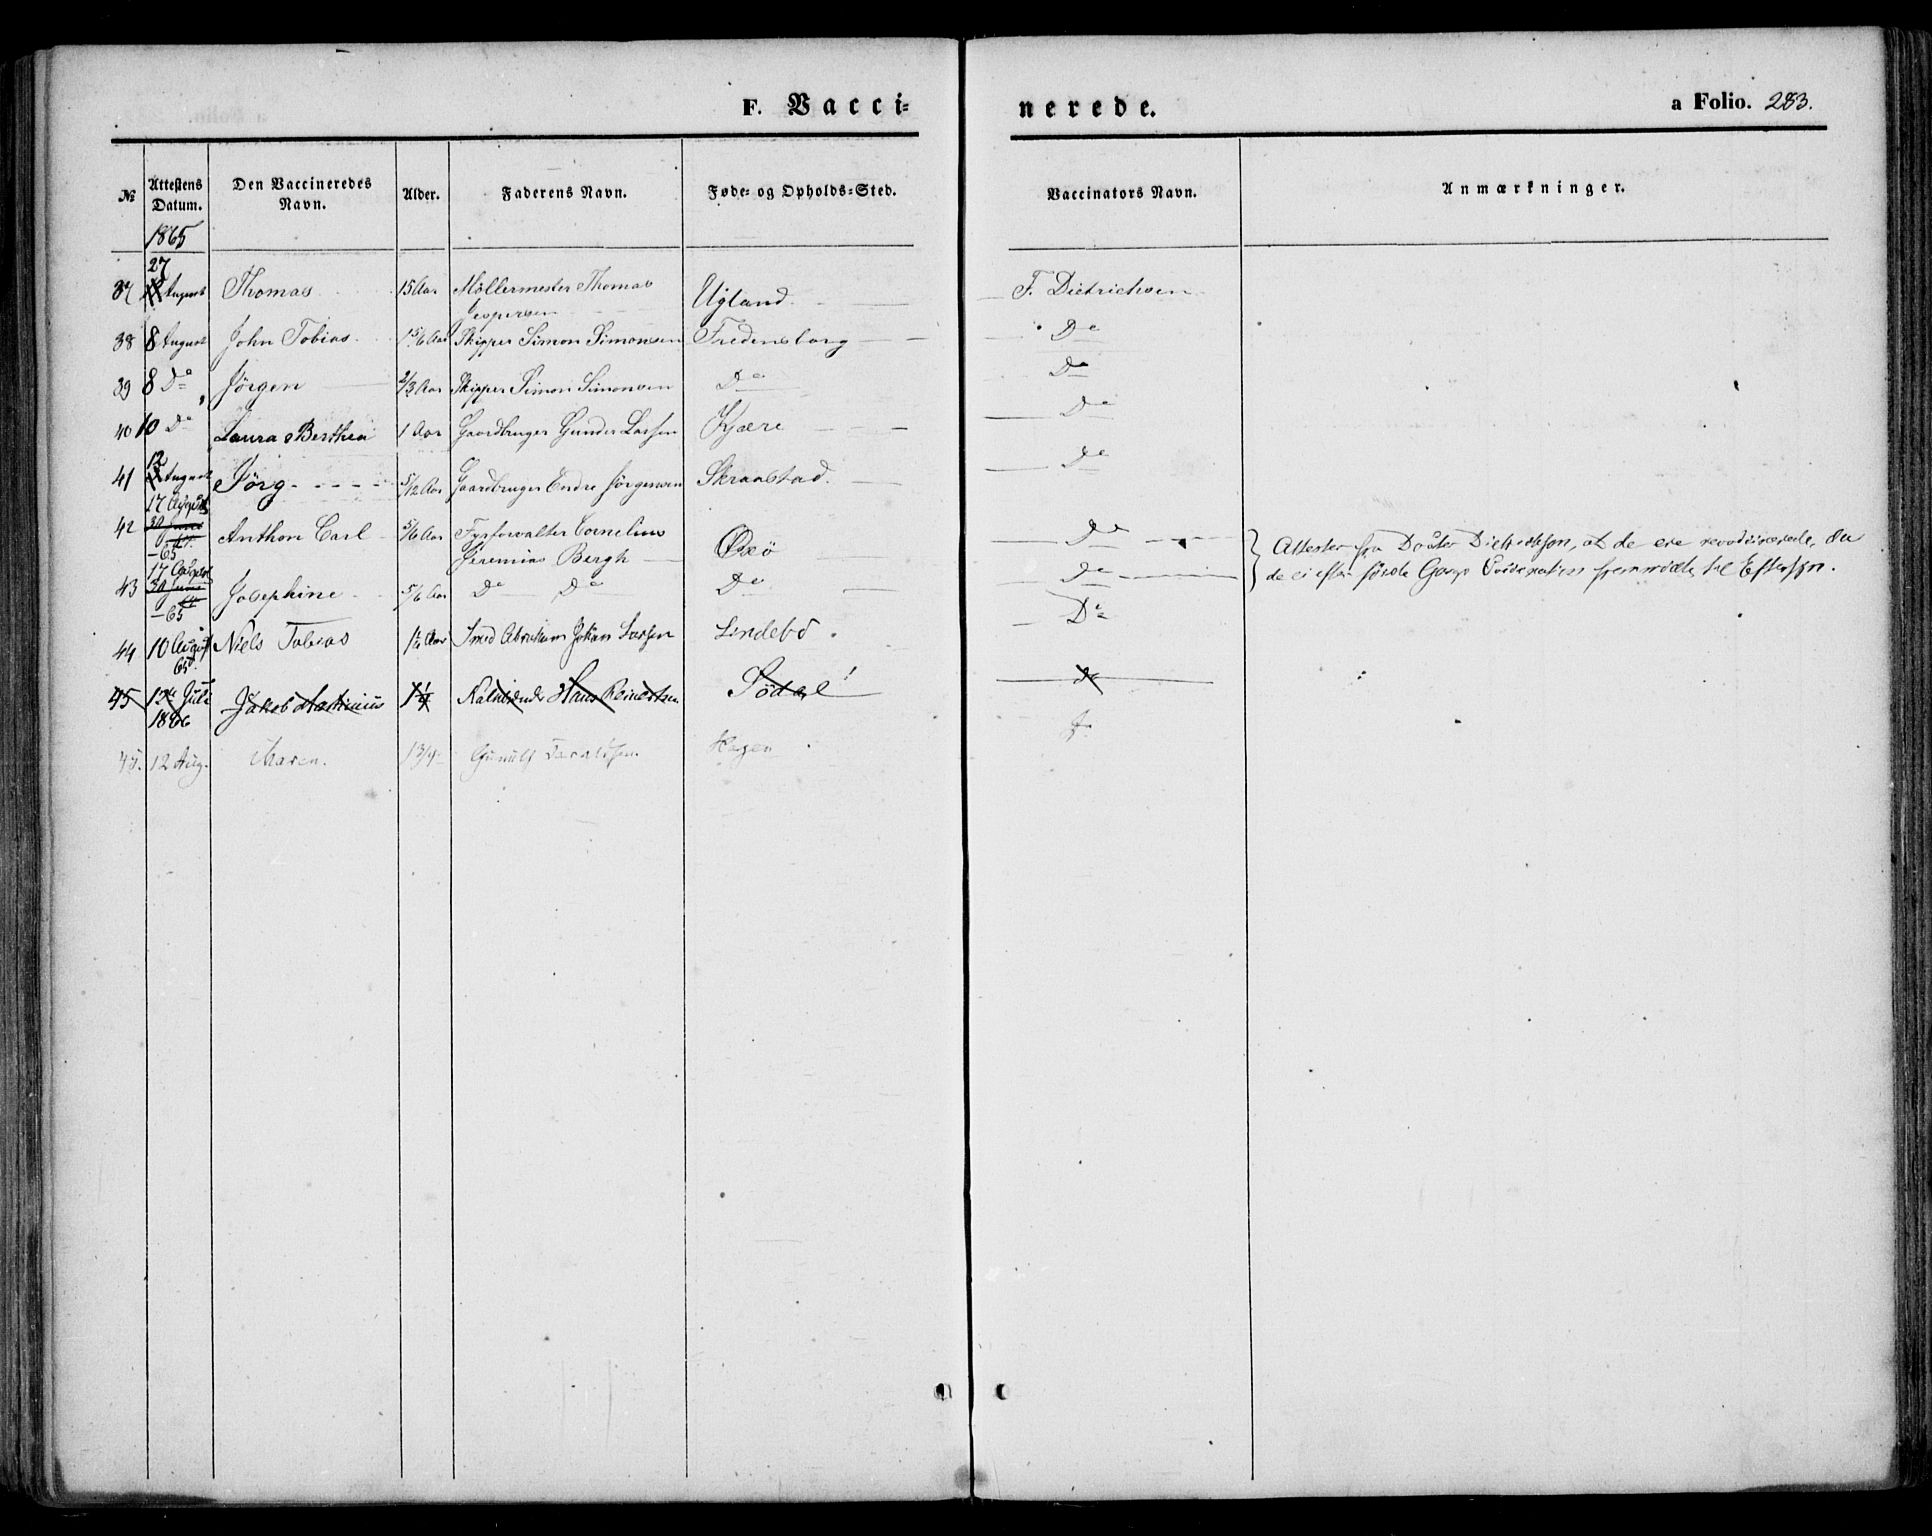 F. Vacci-
nerede.
a Folio. 283.
№ Attestens Datum. Den Vaccineredes Navn. Alder. Faderens Navn. Føde- og Opholds-Sted. Vaccinators Navn. Anmærkninger.
1865
27
37 August Thomas 15 Aar Möllermester Thomas Ugland F. Dietrichsen
Jespersen
38 8 August John Tobias 1 5/6 Aar Skipper Simon Simonsen Fredensborg Do
39 8 Do Jörgen 2/3 Aar Skipper Simon Simonsen Do Do
40 10 Do Laura Berthea 1 Aar Gaardbruger Gunder Larsen Kjære Do
12
41 August Jörg 5/12 Aar Gaardbruger Endre Jörgensen Do
17 August
42 30 Juni Anthon Carl 5/6 Aar Fyrforvalter Cornelius Oxö Do
64
-65 Jeremias Bergh
Attester fra Doktor Dietrichson, at de ere revaccinerede, da
de ei efter förste Gangs Vaccination fremmödte til Eftersyn.
17 August
43 30 Juni Josephine 5/6 Aar Do Do Do Do
64
-65
44 10 August Niels Tobias Aar Smed Abraham Johan Larsen Lindebö Do
65
45 12te Juli Jakob Martinius 1 1/4 Hans Reinertsen Södal Do
1866
45. 12 Aug. Maren. 1 3/4 Gunulf Hagen